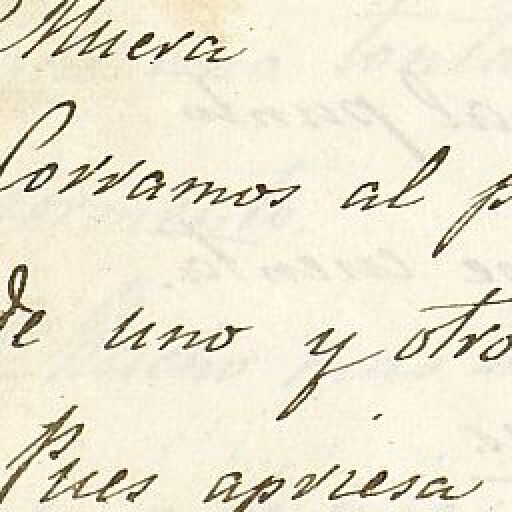 Muera
Corramos al p
de uno y otro
Pues apriesa